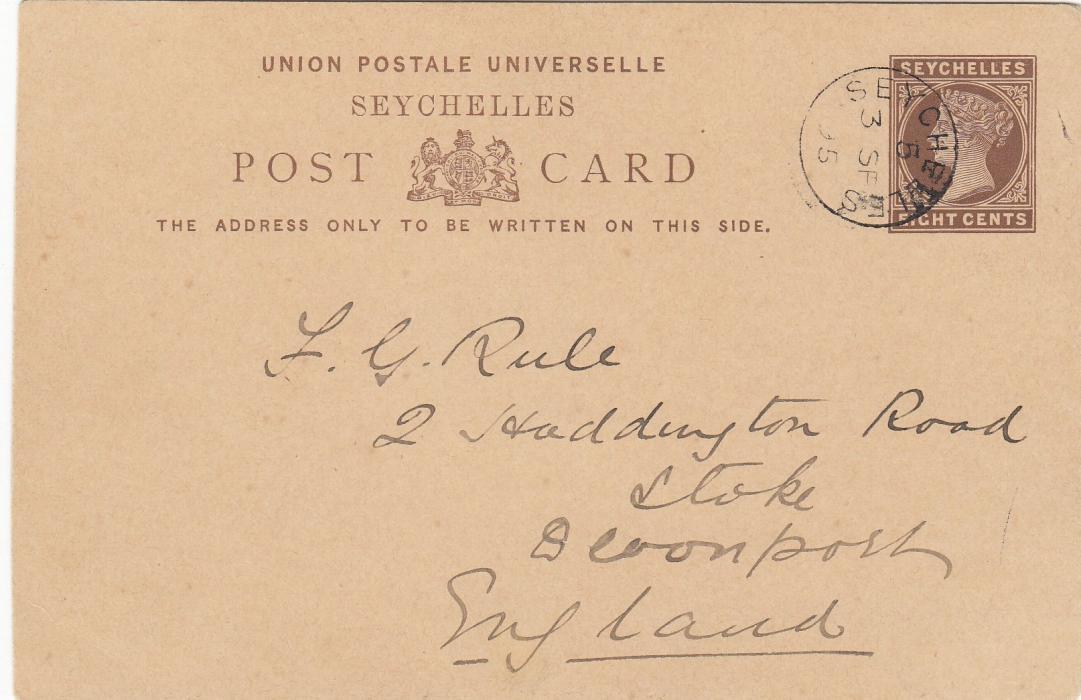 UNION POSTALE UNIVERSELLE
SEYCHELLES
POST CARD
THE ADDRESS ONLY TO BE WRITTEN ON THIS SIDE.
SEYCHELLES
EIGHT CENTS
SEYCHELLES
5
3 SE
95
F. G. Rule
2 Haddington Road
Stoke
Devonport
England